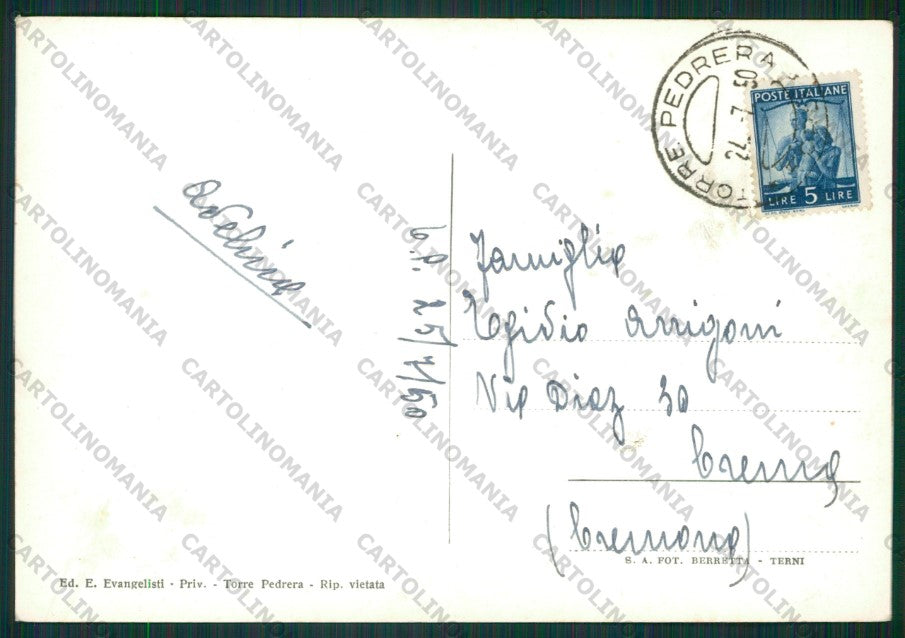 TORRE PEDRERA
24.7.50
POSTE ITALIANE
LIRE 5 LIRE
Adelina
25/7/50
Famiglia
Egidio Arrigoni
Via Diaz 30
Crema
(Cremona)
S. A. FOT. BERRETTA - TERNI
Ed. E. Evangelisti - Priv. - Torre Pedrera - Rip. vietata
CARTOLINOMANIA